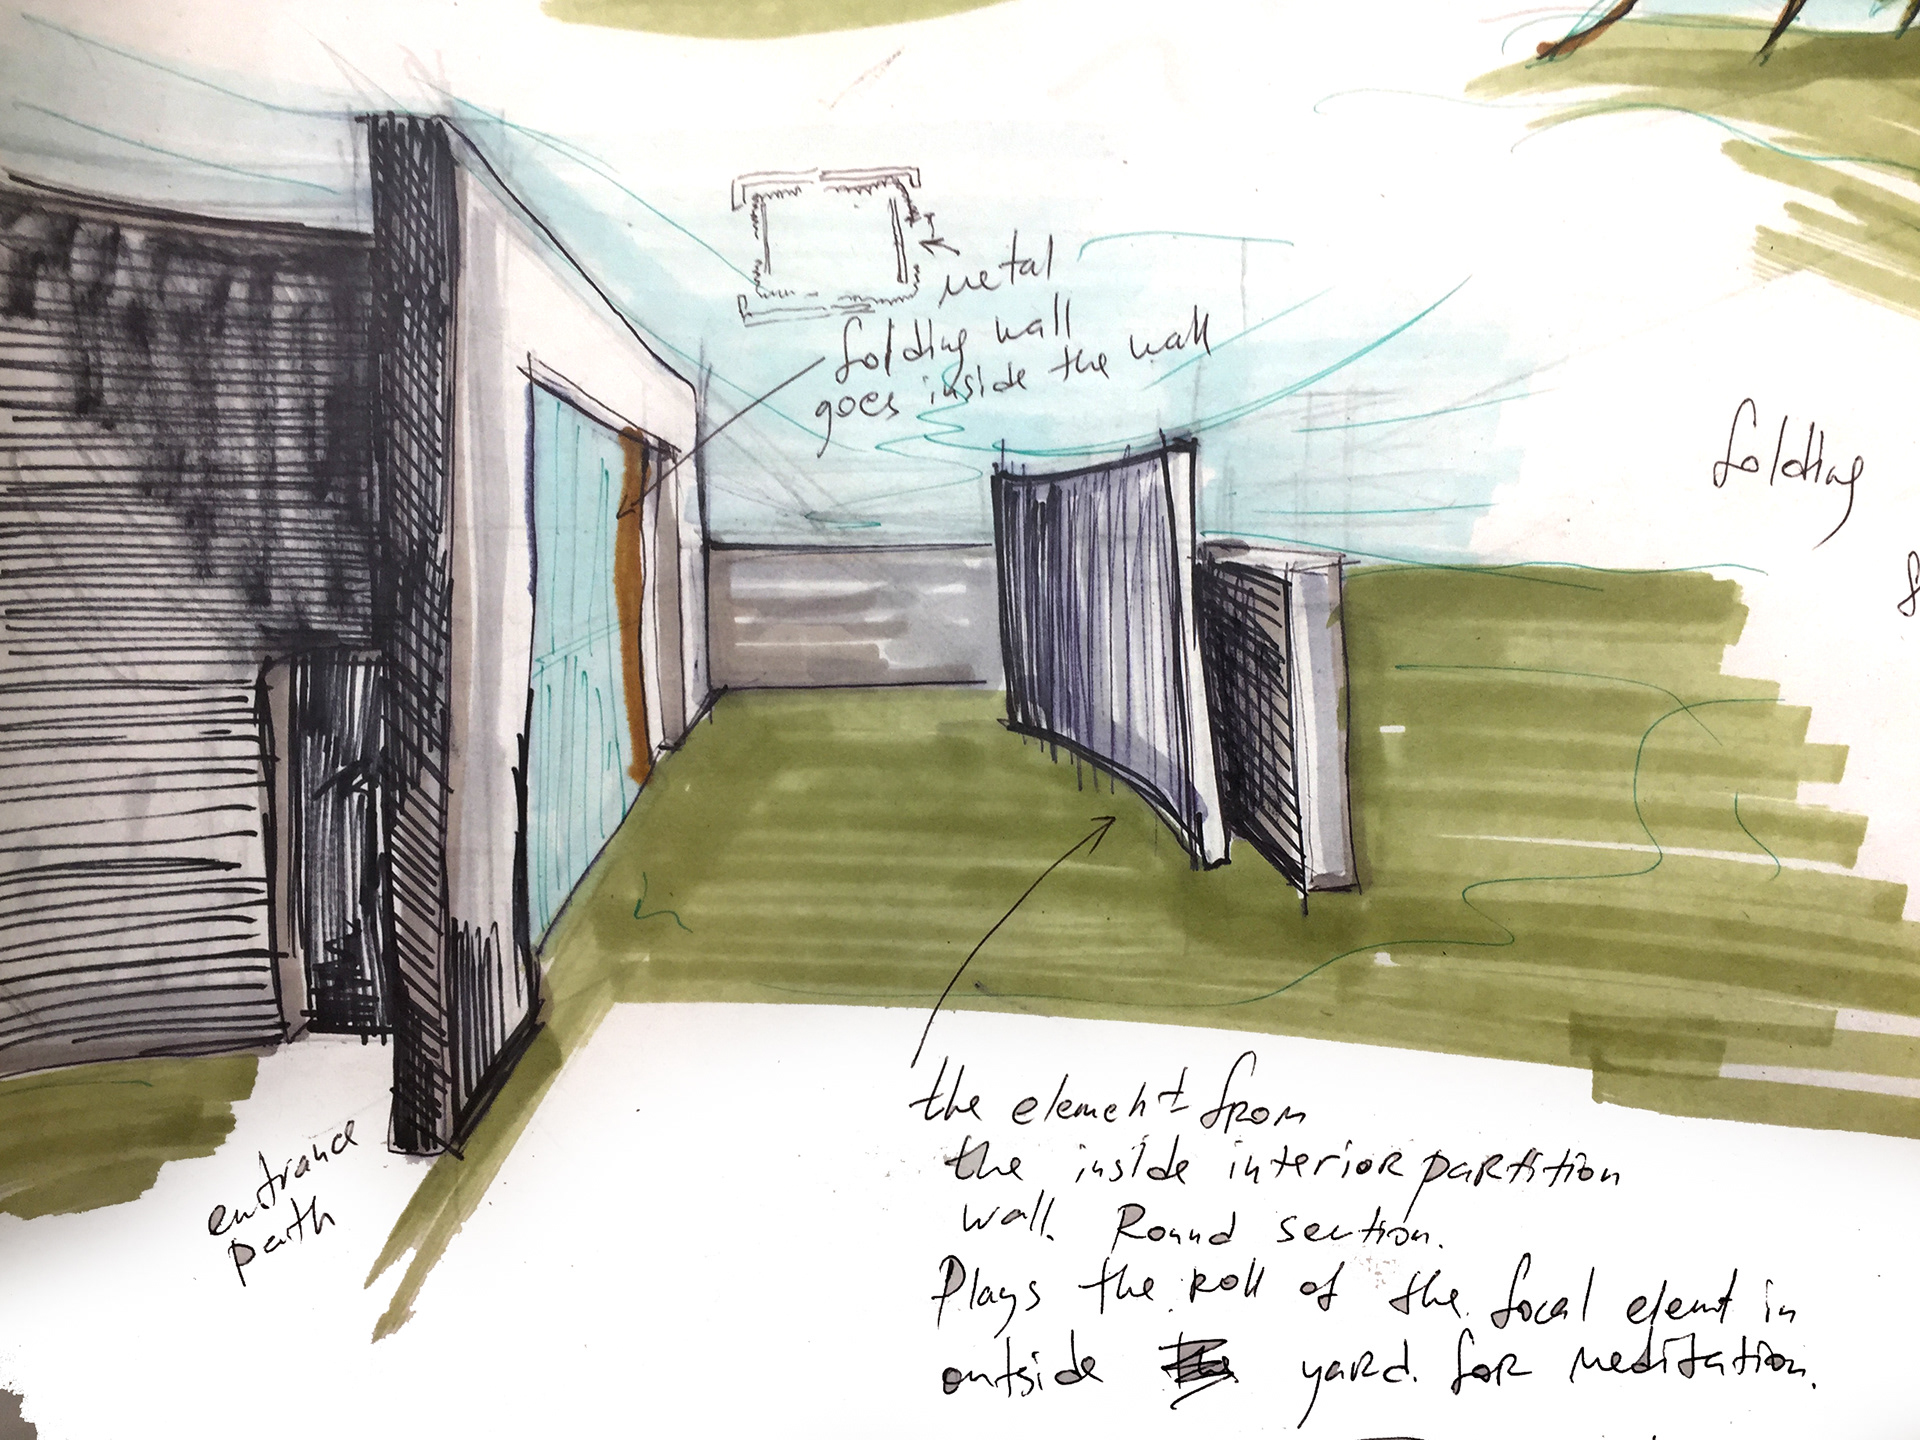 metal
folding wall
goes inside the wall
folding
entrance
path
the element from
the inside interior partition
wall. Round section.
Plays the roll of the focal elemt in
outside yard. for meditation.